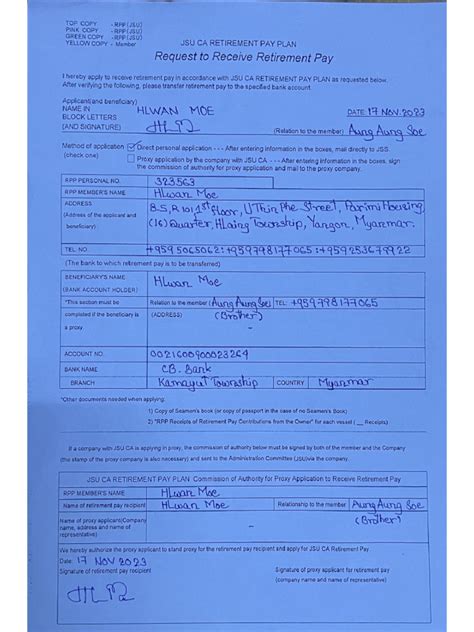 TOP COPY - RPP (JSU)
PINK COPY - RPP (JSU)
GREEN COPY - RPP (JSU)
YELLOW COPY - Member
JSU CA RETIREMENT PAY PLAN
Request to Receive Retirement Pay
I hereby apply to receive retirement pay in accordance with JSU CA RETIREMENT PAY PLAN as requested below.
After verifying the following, please transfer retirement pay to the specified bank account.
Applicant(and beneficiary)
NAME IN HLWAN MOE DATE: 17 NOV. 2023
BLOCK LETTERS
(AND SIGNATURE) (Relation to the member) Aung Aung Soe
Method of application ☑ Direct personal application - - - After entering information in the boxes, mail directly to JSS.
(check one) ☐ Proxy application by the company with JSU CA - - - After entering information in the boxes, sign
the commission of authority for proxy application and mail to the proxy company.
RPP PERSONAL NO. 323563
RPP MEMBER'S NAME Hlwan Moe
ADDRESS 85, R 101 1st floor, U Thin Phe Street, Parimi Housing,
(Address of the applicant and (16) Quarter, Hlaing Township, Yangon, Myanmar.
beneficiary)
TEL NO. +9595065062: +959798177065: +959253679922
(The bank to which retirement pay is to be transferred)
BENEFICIARY'S NAME Hlwan Moe
(BANK ACCOUNT HOLDER)
*This section must be Relation to the member (Aung Aung Soe) TEL: +959798177065
completed if the beneficiary is (ADDRESS) (Brother)
a proxy.
ACCOUNT NO. 0021600900023264
BANK NAME CB. Bank
BRANCH Kamayut Township COUNTRY Myanmar
*Other documents needed when applying:
1) Copy of Seamen's book (or copy of passport in the case of no Seamen's Book)
2) "RPP Receipts of Retirement Pay Contributions from the Owner" for each vessel ( __ Receipts)
If a company with JSU CA is applying in proxy, the commission of authority below must be signed by both of the member and the Company
(the stamp of the proxy company is also necessary) and sent to the Administration Committee (JSU)via the company.
JSU CA RETIREMENT PAY PLAN Commission of Authority for Proxy Application to Receive Retirement Pay
RPP MEMBER'S NAME Hlwan Moe
Name of retirement pay recipient Hlwan Moe Relationship to the member Aung Aung Soe
Name of proxy applicant(Company (Brother)
name, address and name of
representative)
We hereby authorize the proxy applicant to stand proxy for the retirement pay recipient and apply for JSU CA Retirement Pay.
Date: 17 NOV 2023
Signature of retirement pay recipient Signature of proxy applicant for retirement pay
(company name and name of representative)